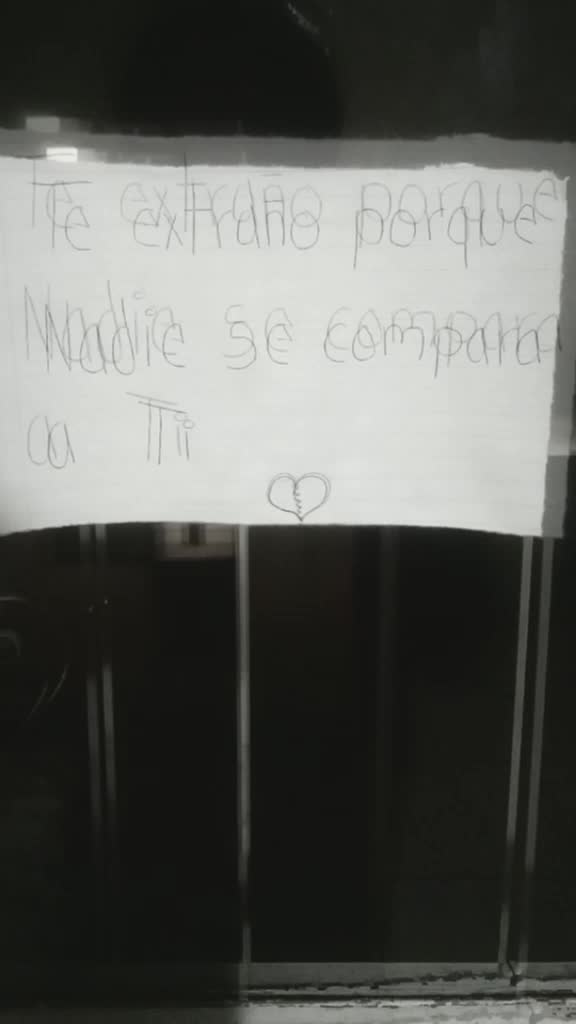 Te extraño porque
Nadie se compara
a Ti